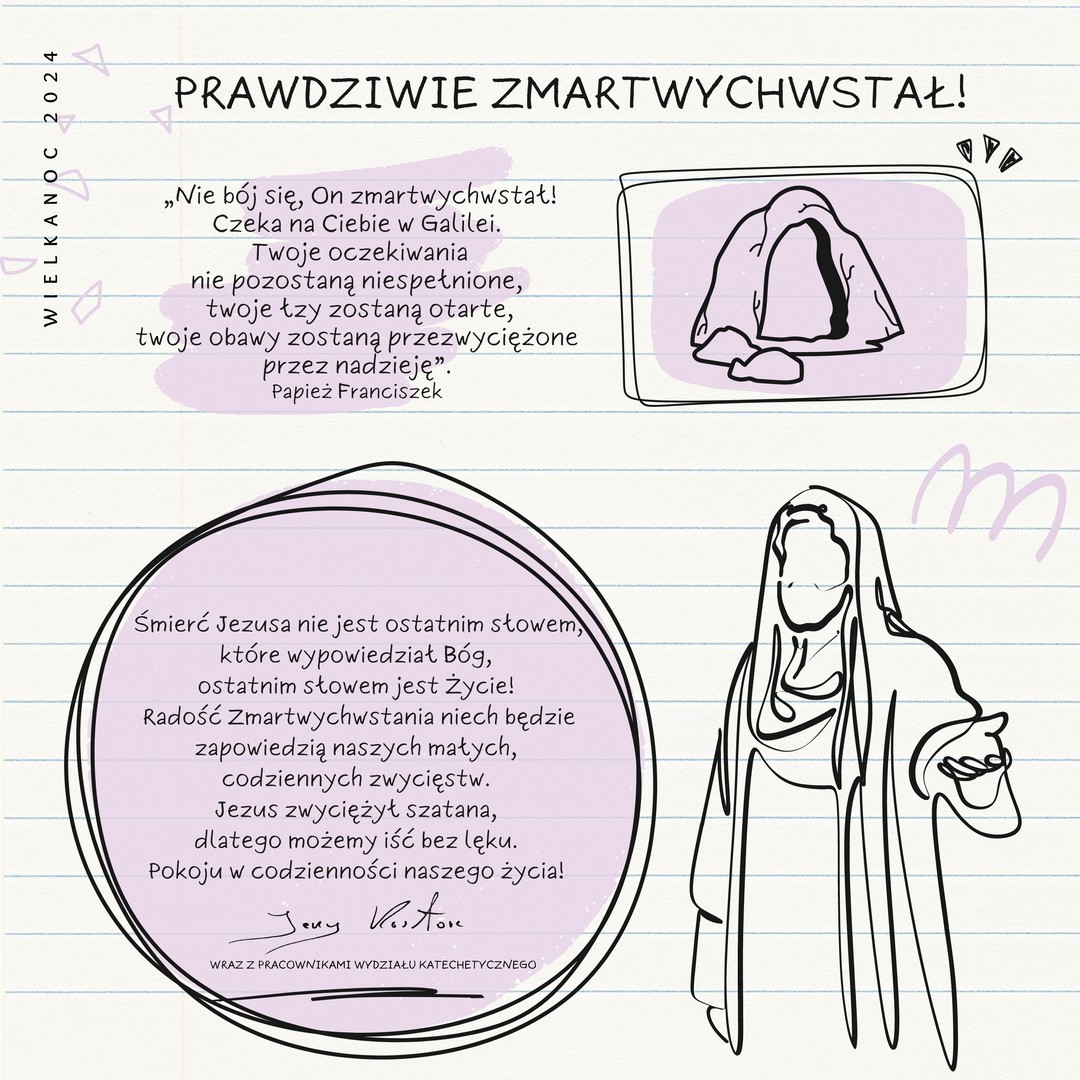 WIELKANOC 2024
PRAWDZIWIE ZMARTWYCHWSTAŁ!
„Nie bój się, On zmartwychwstał!
Czeka na Ciebie w Galilei.
Twoje oczekiwania
nie pozostaną niespełnione,
twoje łzy zostaną otarte,
twoje obawy zostaną przezwyciężone
przez nadzieję”.
Papież Franciszek
Śmierć Jezusa nie jest ostatnim słowem,
które wypowiedział Bóg,
ostatnim słowem jest Życie!
Radość Zmartwychwstania niech będzie
zapowiedzią naszych małych,
codziennych zwycięstw.
Jezus zwyciężył szatana,
dlatego możemy iść bez lęku.
Pokoju w codzienności naszego życia!
WRAZ Z PRACOWNIKAMI WYDZIAŁU KATECHETYCZNEGO